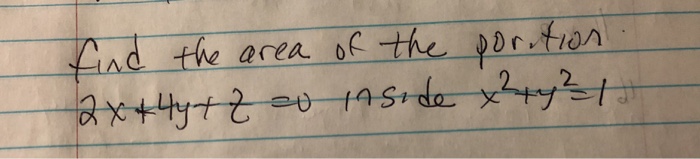 find the area of the portion.
2x+4y+z=0 inside x²+y²=1